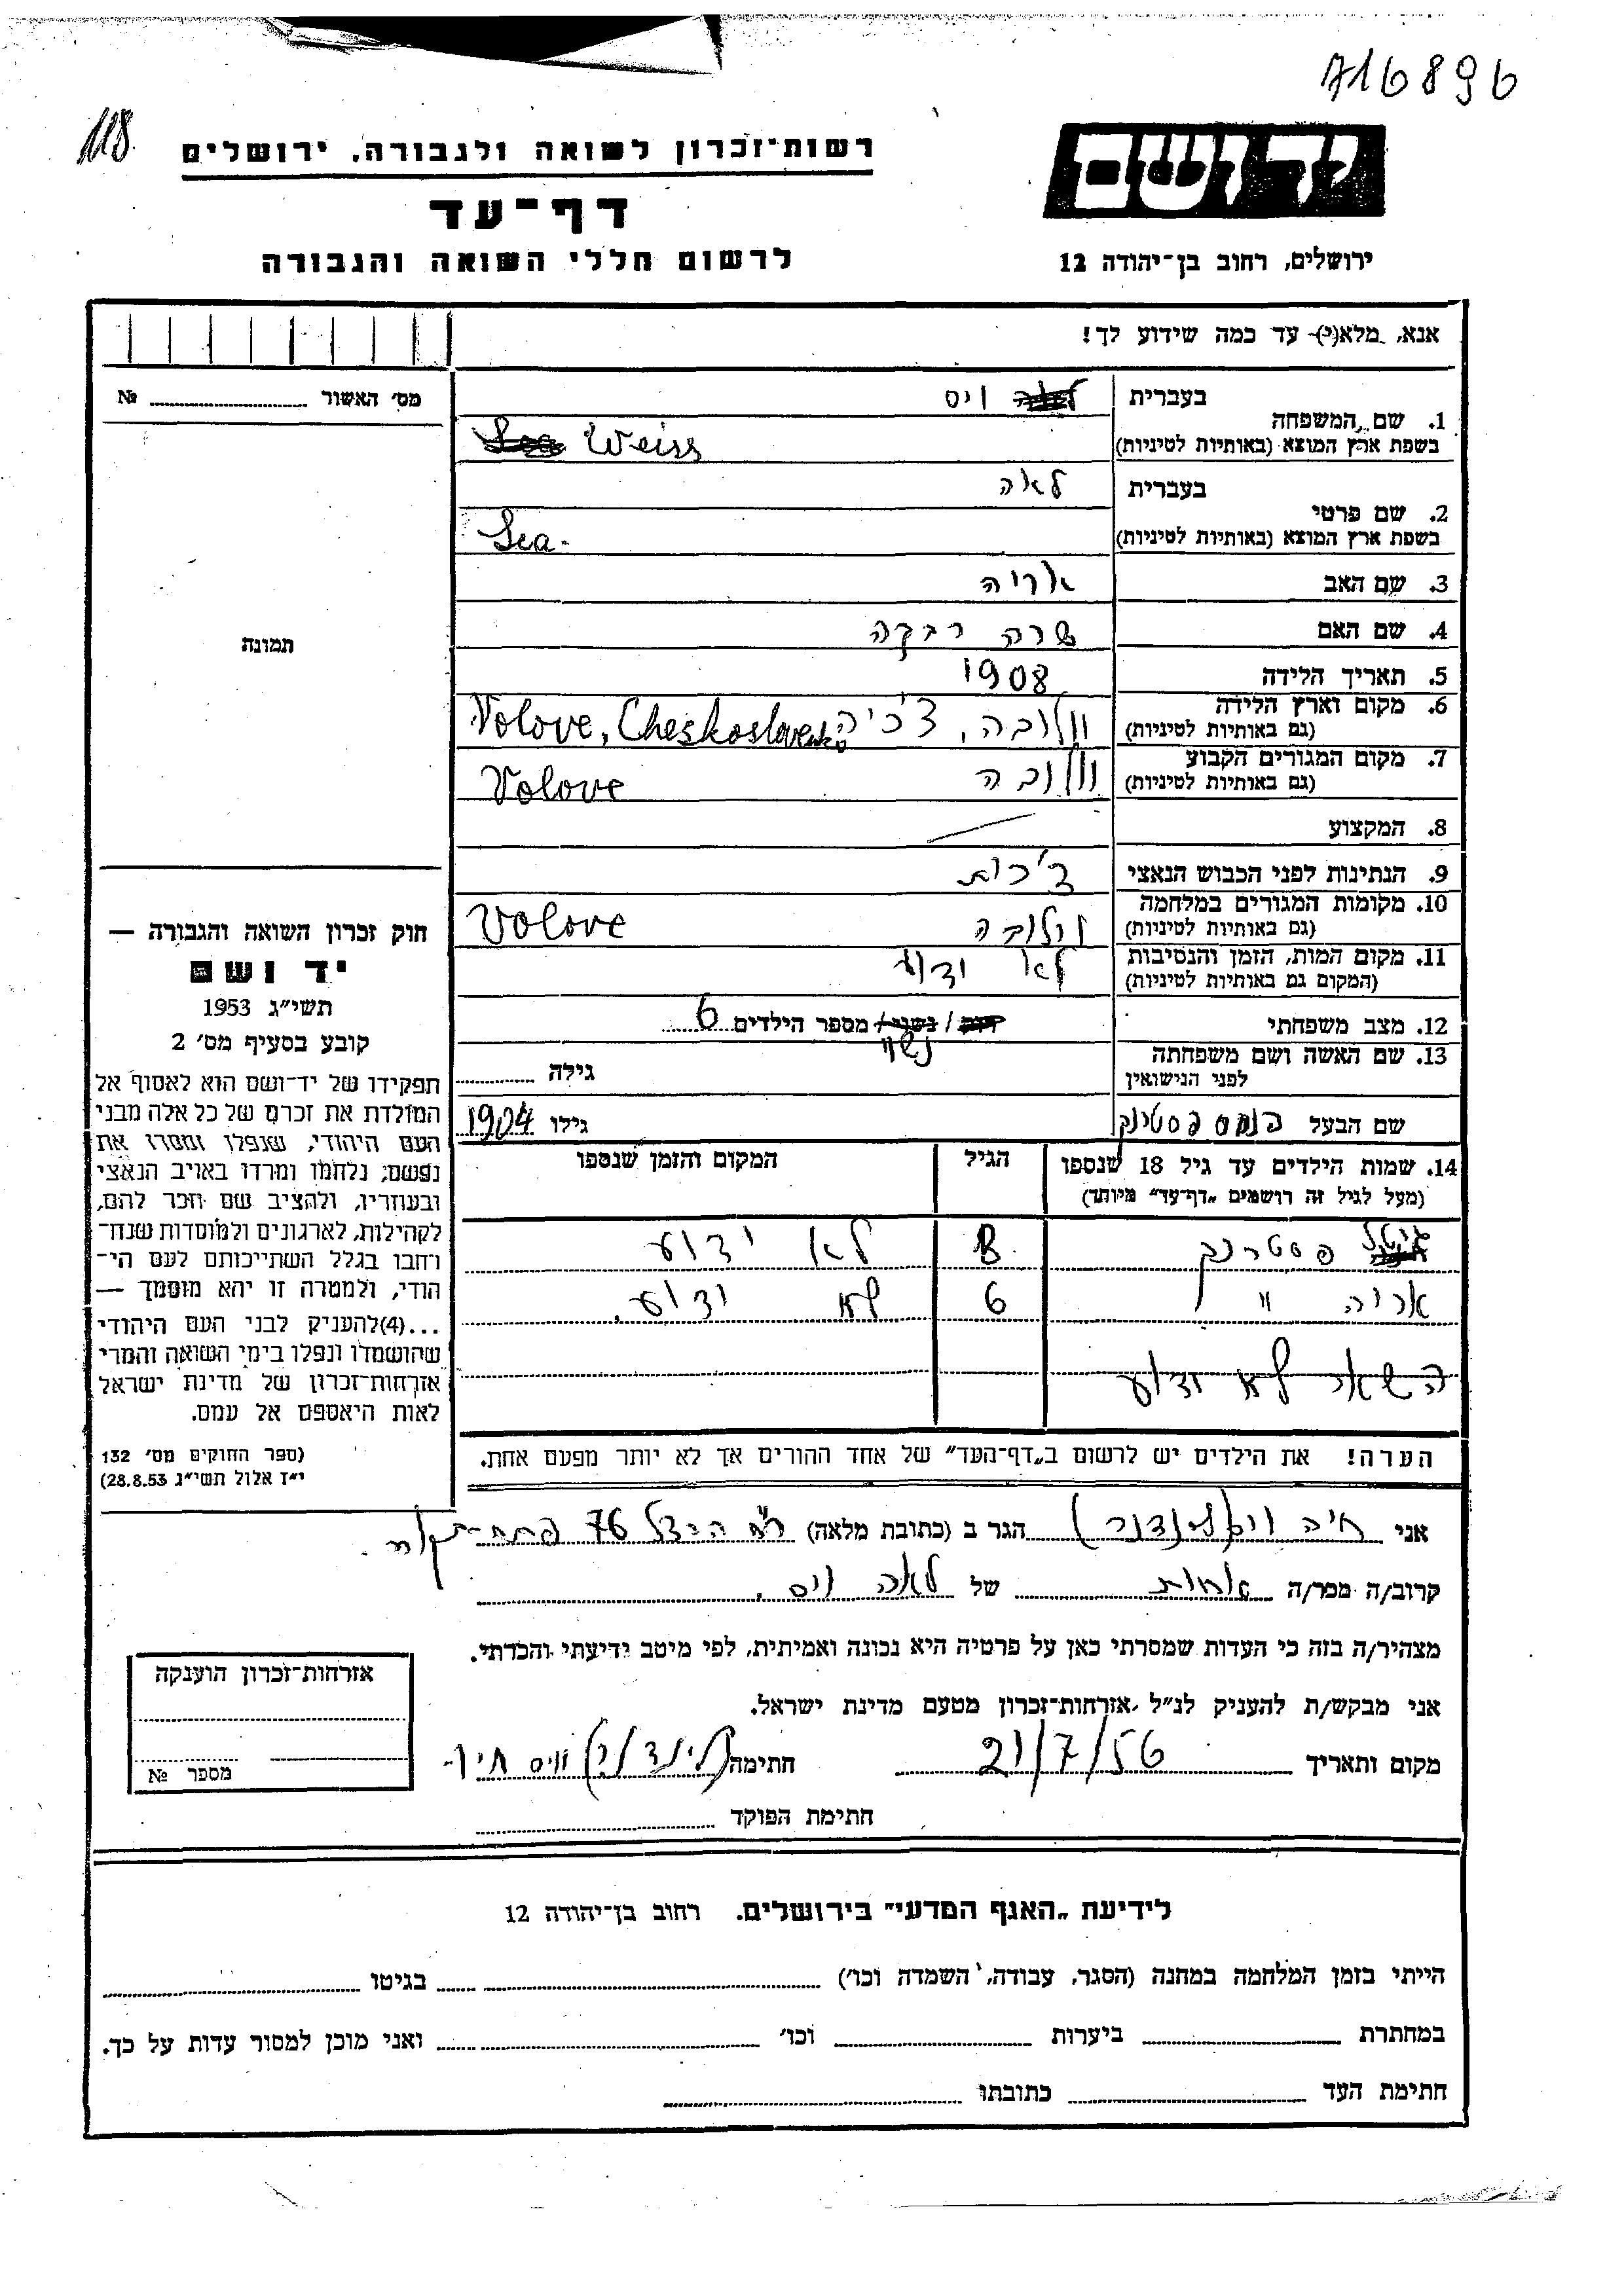 716896
118
רשות־זכרון לשואה ולגבורה, ירושלים
דף־עד
לרשום חללי השואה והגבורה
יד ושם
ירושלים, רחוב בן־יהודה 12
אנא, מלא(י) עד כמה שידוע לך!
מס׳ האשור № 
1. שם המשפחה
בעברית ויס
בשפת ארץ המוצא (באותיות לטיניות) Weiss
2. שם פרטי
בעברית לאה
בשפת ארץ המוצא (באותיות לטיניות) Lea
3. שם האב אריה
4. שם האם שרה רבקה
5. תאריך הלידה 1908
6. מקום וארץ הלידה
(גם באותיות לטיניות) וולובה, צ'כיה Volove,
7. מקום המגורים הקבוע
(גם באותיות לטיניות) וולובה Volove
8. המקצוע
9. הנתינות לפני הכבוש הנאצי צ'כית
10. מקומות המגורים במלחמה
(גם באותיות לטיניות) וולובה Volove
11. מקום המות, הזמן והנסיבות
(המקום גם באותיות לטיניות) לא ידוע
12. מצב משפחתי רוק / נשוי / מספר הילדים 6
נשוי
13. שם האשה ושם משפחתה
לפני הנישואין גילה
שם הבעל פנחס גילו 1904
14. שמות הילדים עד גיל 18 שנספו הגיל המקום והזמן שנספו
(מעל לגיל זה רושמים „דף־עד״ מיוחד)
8 לא ידוע
אריה " 6 לא ידוע.
השאר לא ידוע
הערה! את הילדים יש לרשום ב„דף־העד״ של אחד ההורים אך לא יותר מפעם אחת.
תמונה
חוק זכרון השואה והגבורה —
יד ושם
תשי״ג 1953
קובע בסעיף מס׳ 2
תפקידו של יד־ושם הוא לאסוף אל
המולדת את זכרם של כל אלה מבני
העם היהודי, שנפלו ומסרו את
נפשם, נלחמו ומרדו באויב הנאצי
ובעוזריו, ולהציב שם וזכר להם,
לקהילות, לארגונים ולמוסדות שנח־
רחבו בגלל השתייכותם לעם הי־
הודי, ולמטרה זו יהא מוסמך —
...(4)להעניק לבני העם היהודי
שהושמדו ונפלו בימי השואה והמרי
אזרחות־זכרון של מדינת ישראל
לאות היאספם אל עמם.
(ספר החוקים מס׳ 132
י״ז אלול תשי״ג 28.8.53)
אני חיה ויס הגר ב (כתובת מלאה) רח הרצל 76 פתח־תקוה.
קרוב/ה מכר/ה אחות של לאה ויס.
מצהיר/ה בזה כי העדות שמסרתי כאן על פרטיה היא נכונה ואמיתית, לפי מיטב ידיעתי והכרתי.
אני מבקש/ת להעניק לנ״ל אזרחות־זכרון מטעם מדינת ישראל.
מקום ותאריך 21/7/56 חתימה ויס חיה
חתימת הפוקד
אזרחות־זכרון הוענקה
מספר №
לידיעת „האגף המדעי״ בירושלים. רחוב בן־יהודה 12
הייתי בזמן המלחמה במחנה (הסגר, עבודה, השמדה וכו׳) בגיטו
במחתרת ביערות וכו׳ ואני מוכן למסור עדות על כך.
חתימת העד כתובתו